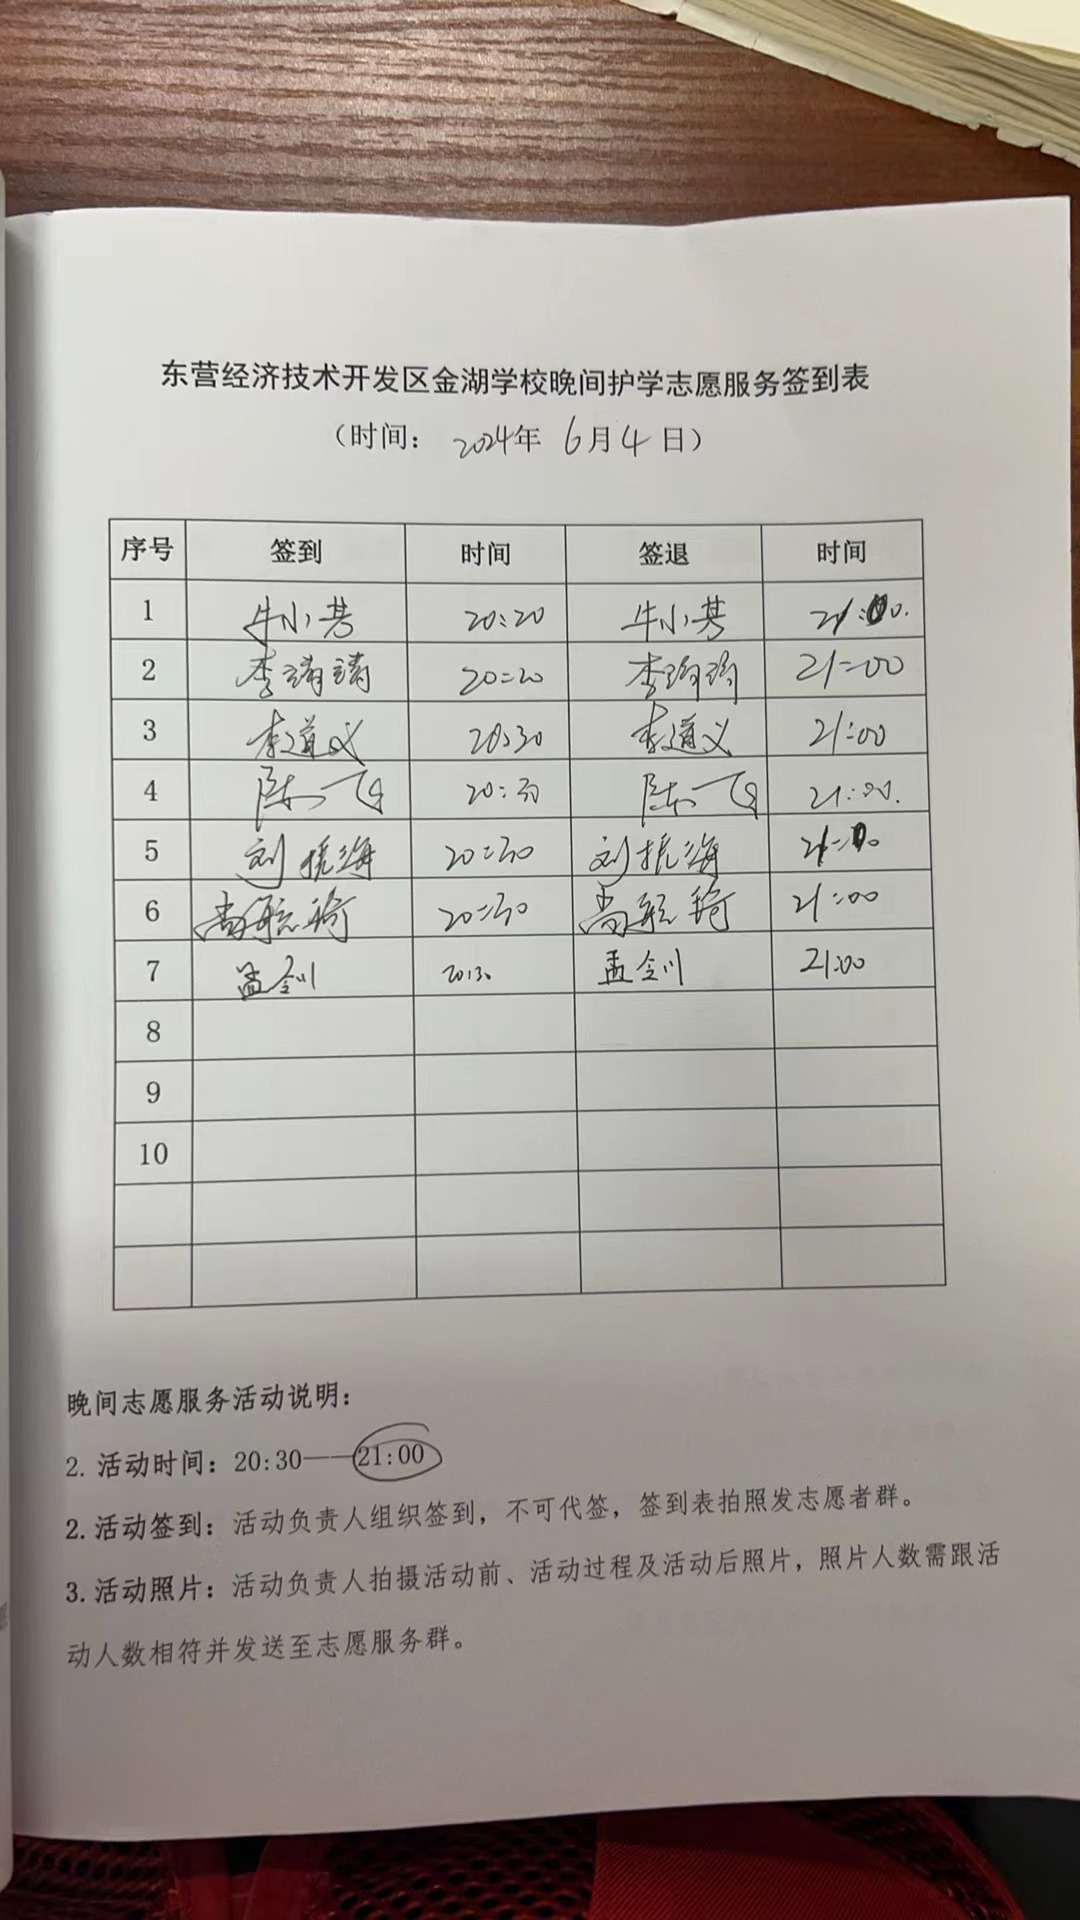 东营经济技术开发区金湖学校晚间护学志愿服务签到表
（时间： 2024年 6月4日）
序号 签到 时间 签退 时间
1 牛小芳 20:20 牛小芳 21:00.
2 李 20:20 李 21:00
3 李道义 20:30 李道义 21:00
4 陈一飞 20:30 陈一飞 21:00.
5 刘振海 20:30 刘振海
6 尚航琦 20:30 尚航琦 21:00
7 孟剑川 20:30 孟剑川 21:00
8
9
10
晚间志愿服务活动说明：
2. 活动时间：20:30——21:00
2. 活动签到：活动负责人组织签到，不可代签，签到表拍照发志愿者群。
3. 活动照片：活动负责人拍摄活动前、活动过程及活动后照片，照片人数需跟活
动人数相符并发送至志愿服务群。